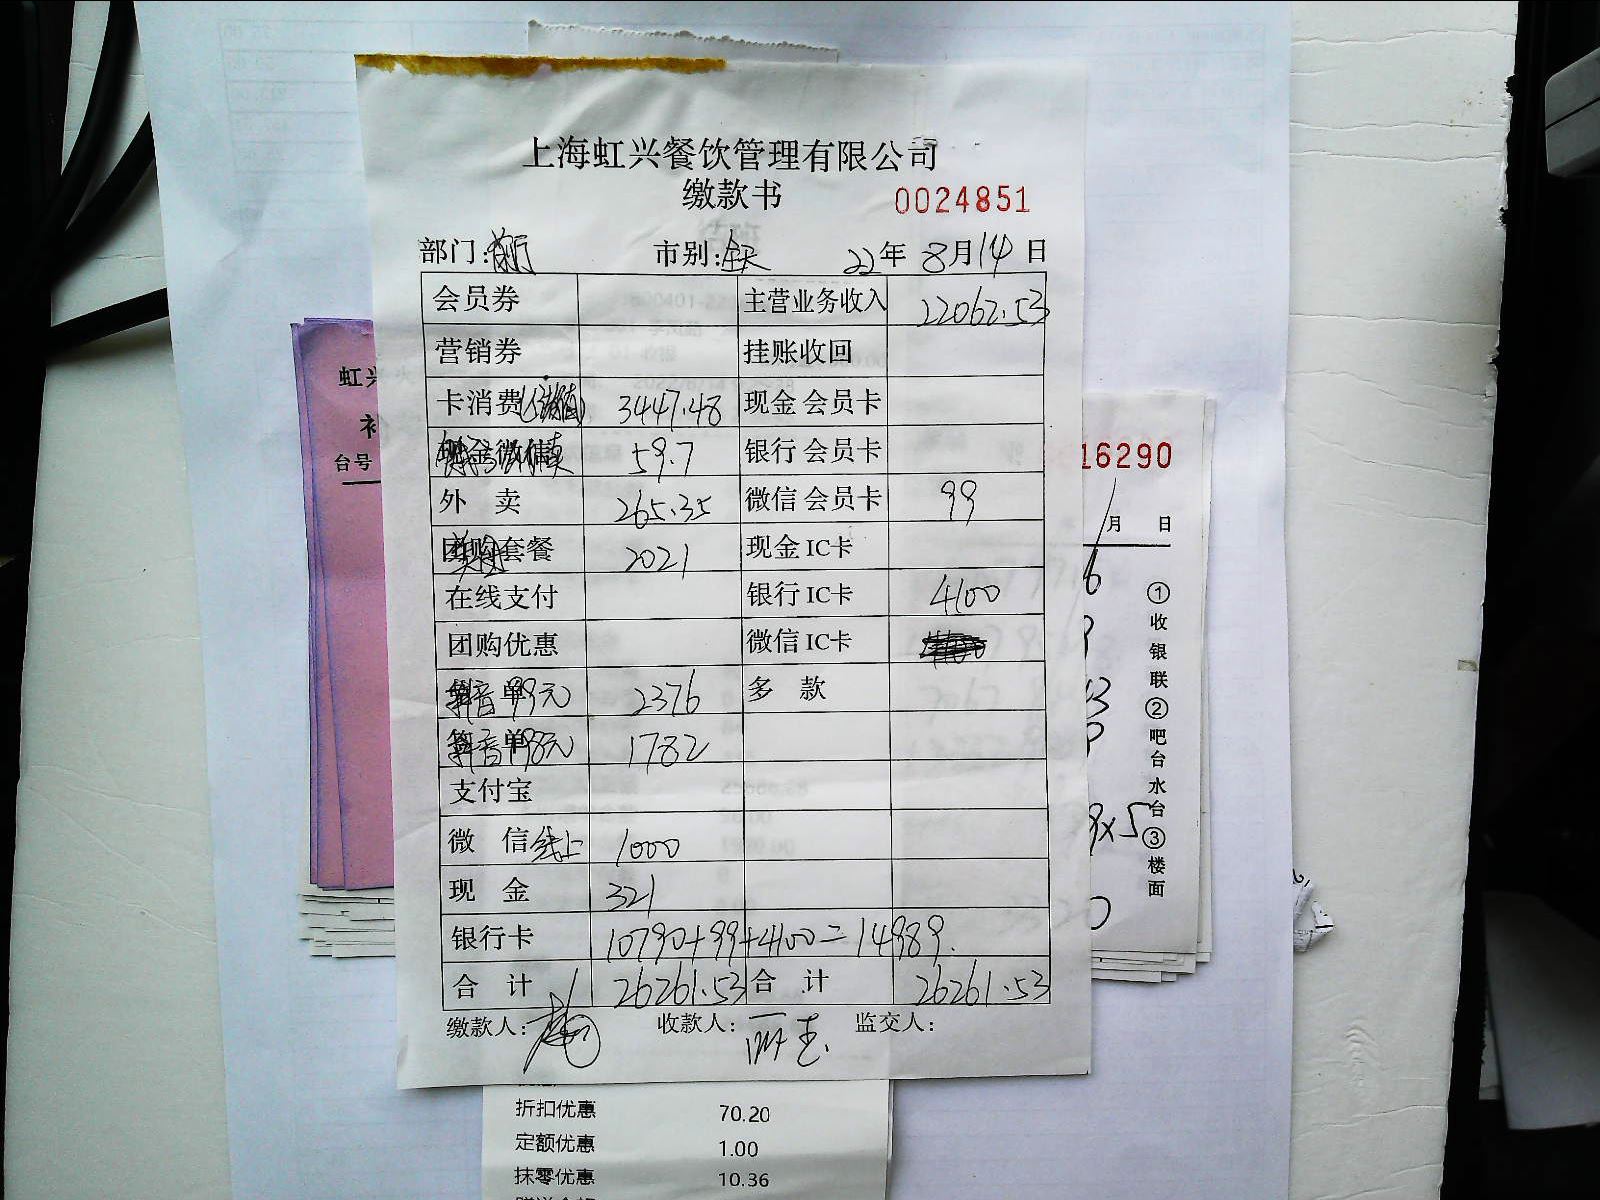 上海虹兴餐饮管理有限公司
缴款书 0024851
部门:前厅 市别:全天 22年8月14日
会员券 主营业务收入 22062.53
营销券 挂账收回
卡消费 3447.48 现金会员卡
59.7 银行会员卡
外卖 265.35 微信会员卡 99
套餐 2021 现金IC卡
在线支付 银行IC卡 4100
团购优惠 微信IC卡
抖音单99元 2376 多款
抖音单198元 1782
支付宝
微信线上 1000
现金 321
银行卡 10790+99+4100=14989.
合计 26261.53 合计 26261.53
缴款人: 收款人: 监交人:
虹兴
台号
16290
月 日
①收银联②吧台水台③楼面
折扣优惠 70.20
定额优惠 1.00
抹零优惠 10.36